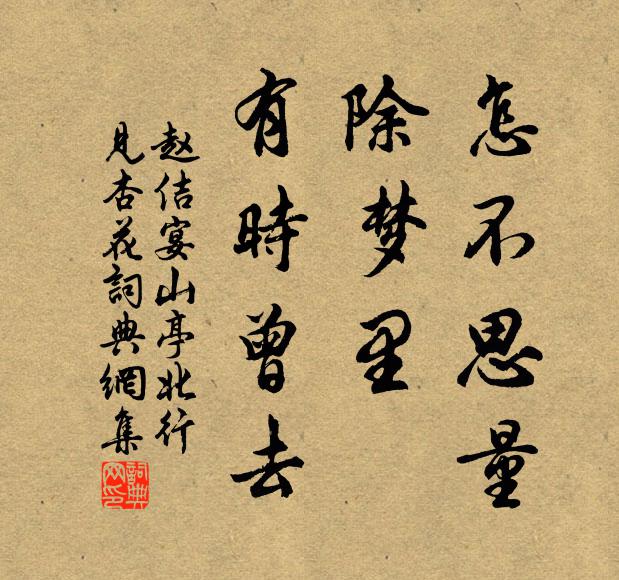 怎不思量
除梦里
有時曾去
赵佶宴山亭北行
見杏花詞典網集
詞典
网印